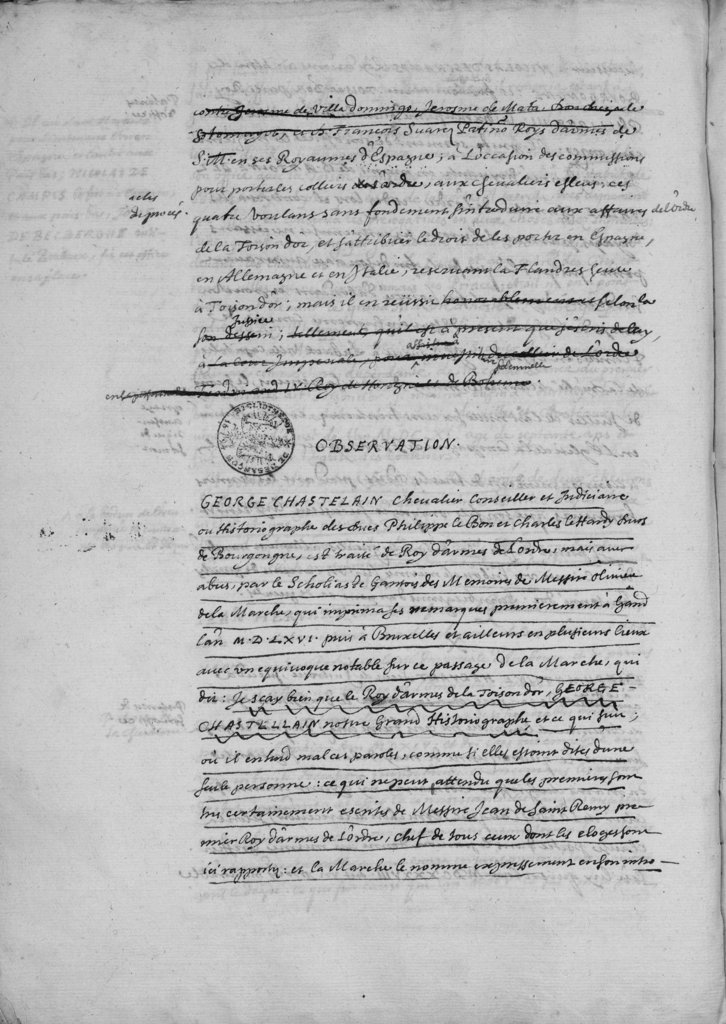 contre Jerosme de Villa domingo, Jerosme de Mata
et François Suares Patiño Roys d'armes de
S. M. en ses Royaumes d'Espagne, à l'occasion des commissions
pour porter les colliers de l'Ordre, aux chevaliers esleus, ces
actes
de procés.
quatre voulans sans fondement s'introduire aux affaires de l'Ordre
de la Toison d'or, et s'attribuer le droit de les porter en Espagne,
en Allemagne et en Italie, reservant la Flandres seule
à Toison d'or; mais il en reüssit honorablement selon la
Justice
son dessein; tellement qu'il est à present que j'escris delay,
à la Cour Imperiale, pour
solemnelle
IV Roy de Hongrie et de Boheme.
BIBLIOTHEQUE DE BESANÇON
OBSERVATION.
GEORGE CHASTELAIN Chevalier Conseiller et Indiciaire
ou Historiographe des ducs Philippe le Bon et Charles le Hardy ducs
de Bourgongne, est traité de Roy d'armes de l'Ordre, mais avec
abus, par le Scholiaste Gantois des Memoires de Messire Olivier
de la Marche, qui imprima ses remarques premierement à Gand
l'an M.D.LXVI. puis à Bruxelles et ailleurs en plusieurs lieux
avec un equivoque notable sur ce passage de la Marche, qui
dit: Je sçay bien que le Roy d'armes de la Toison d'or, GEORGE
CHASTELLAIN nostre Grand Historiographe et ce qui suit;
où il entend mal ces paroles, comme si elles estoint dites d'une
seule personne: ce qui ne peut, attendu que les premieres sont
certainement escrites de Messire Jean de Saint Remy pre-
mier Roy d'armes de l'Ordre, chef de tous ceux dont les eloges sont
ici rapportez: et la Marche le nomme expressement en son intro-